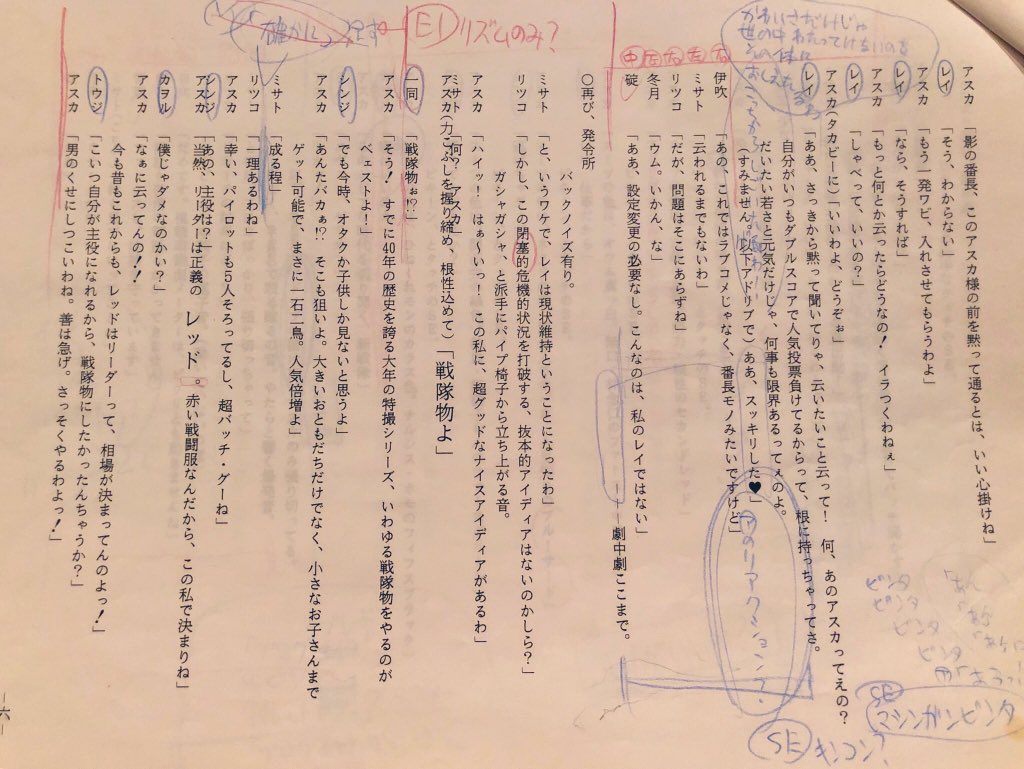 アスカ「影の番長、このアスカ様の前を黙って通るとは、いい心掛けね」
レイ「そう、わからない」
アスカ「もう一発ワビ、入れさせてもらうわよ」
レイ「なら、そうすれば」
アスカ「もっと何とか云ったらどうなの！ イラつくわねぇ」
レイ「しゃべって、いいの？」
アスカ(タカビーに)「いいわよ、どうぞぉ」
レイ「ああ、さっきから黙って聞いてりゃ、云いたいこと云って！ 何、あのアスカってえの？
だいたい若さと元気だけじゃ、何事も限界あるってぇのよ。
自分がいつもダブルスコアで人気投票負けてるからって、根に持っちゃってさ。
(すみません。以下アドリブで)ああ、スッキリした♥」
伊吹「あの、これではラブコメじゃなく、番長モノみたいですけど」
リツコ「云われるまでもないわ」
ミサト「だが、問題はそこにあらずね」
冬月「ウム。いかん、な」
碇「ああ、設定変更の必要なし。こんなのは、私のレイではない」
劇中劇ここまで。
○再び、発令所
バックノイズ有り。
ミサト「と、いうワケで、レイは現状維持ということになったわ」
リツコ「しかし、この閉塞的危機的状況を打破する、抜本的アイディアはないのかしら？」
ガシャガシャ、と派手にパイプ椅子から立ち上がる音。
アスカ「ハイッ！ はぁ～いっ！ この私に、超グッドなナイスアイディアがあるわ」
ミサト「何？ アスカ」
アスカ(力こぶしを握り締め、根性込めて)「戦隊物よ」
一同「戦隊物ぉ!?」
アスカ「そう！ すでに40年の歴史を誇る大年の特撮シリーズ、いわゆる戦隊物をやるのが
ベェストよ！」
シンジ「でも今時、オタクか子供しか見ないと思うよ」
アスカ「あんたバカぁ!? そこも狙いよ。大きいおともだちだけでなく、小さなお子さんまで
ゲット可能で、まさに一石二鳥。人気倍増よ」
ミサト「成る程」
リツコ「一理あるわね」
アスカ「幸い、パイロットも5人そろってるし、超バッチ・グーね」
シンジ「あの、主役は？」
アスカ「当然、リーダーは正義の レッド 。赤い戦闘服なんだから、この私で決まりね」
カヲル「僕じゃダメなのかい？」
アスカ「なぁに云ってんの！！
今も昔もこれからも、レッドはリーダーって、相場が決まってんのよっ！」
トウジ「こいつ自分が主役になれるから、戦隊物にしたかったんちゃうか？」
アスカ「男のくせにしつこいわね。善は急げ。さっそくやるわよっ！」
－六－
かわいさだけじゃ
リアクション？
SE キンコン？
ビンタ
ビンタ
ビンタ
ビンタ
SE
マシンガンビンタ
E1 リズムのみ？
中 左 右 左 右